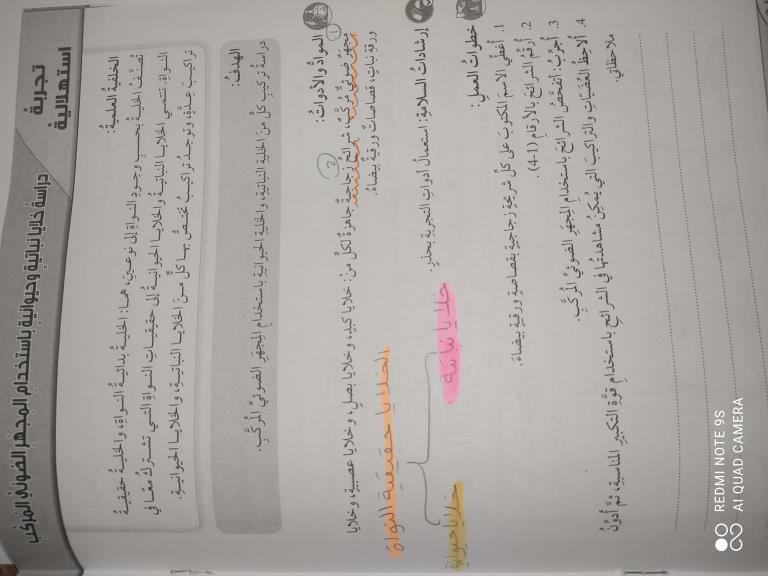 تجربة
استهلالية
دراسة خلايا نباتية وحيوانية باستخدام المجهر الضوئي المركب
الخلفية العلمية:
تُصنَّفُ الخليةُ بحسبِ وجودِ النواةِ إلى نوعينِ، هما: الخليةُ بدائيةُ النواةِ، والخليةُ حقيقيةُ
النواةِ. تنتمي الخلايا النباتيةُ والخلايا الحيوانيةُ إلى حقيقياتِ النواةِ التي تشتركُ معًا في
تراكيبَ عدةٍ، وتوجدُ تراكيبُ تختصُّ بها كلٌّ منَ الخلايا النباتيةِ، والخلايا الحيوانيةِ.
الهدفُ:
دراسةُ تركيبِ كلٍّ منَ الخليةِ النباتيةِ، والخليةِ الحيوانيةِ باستخدامِ المجهرِ الضوئيِّ المُركَّبِ.
الموادُّ والأدواتُ:
1
2
مجهرٌ ضوئيٌّ مُركَّبٌ، شرائحُ زجاجيةٌ جاهزةٌ لكلٍّ منْ: خلايا كبدٍ، وخلايا بصلٍ، وخلايا عصبيةٍ، وخلايا
ورقةِ نباتٍ، قصاصاتٌ ورقيةٌ بيضاءُ.
الخلايا حقيقية النواة
إرشاداتُ السلامةِ: استعمالُ أدواتِ التجربةِ بحذرٍ.
خلايا نباتية
خلايا حيوانية
خطواتُ العملِ:
1. أُغطّي الاسمَ المكتوبَ على كلِّ شريحةٍ زجاجيةٍ بقصاصةٍ ورقيةٍ بيضاءَ.
2. أُرقِّمُ الشرائحَ بالأرقامِ (1-4).
3. أُجرِّبُ: أتفحَّصُ الشرائحَ باستخدامِ المجهرِ الضوئيِّ المُركَّبِ.
4. أُلاحِظُ العُضَيّاتِ والتراكيبَ التي يُمكِنُ مشاهدتُها في الشرائحِ باستخدامِ قوَّةِ التكبيرِ المناسبةِ، ثمَّ أُدوِّنُ
ملاحظاتي.
REDMI NOTE 9S
AI QUAD CAMERA